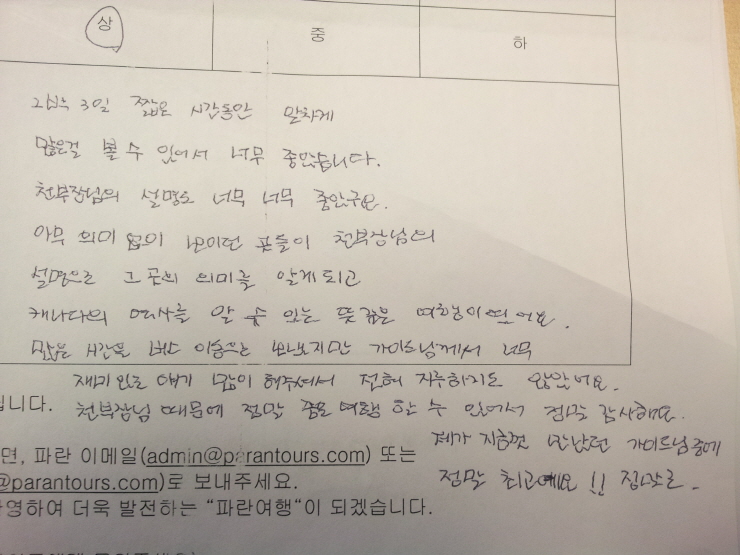 상 중 하
2박 3일 짧은 시간동안 알차게
많은걸 볼 수 있어서 너무 좋았습니다.
천부장님의 설명도 너무 너무 좋았구요.
아무 의미 없이 보이던 곳들이 천부장님의
설명으로 그 곳의 의미를 알게되고
캐나다의 역사를 알 수 있는 뜻깊은 여행이였어요.
많은 시간을 버스 이동으로 보냈지만 가이드님께서 너무
재미있는 얘기 많이 해주셔서 전혀 지루하지도 않았어요.
니다. 천부장님 때문에 정말 좋은 여행 할 수 있어서 정말 감사해요.
제가 지금껏 만났던 가이드님중에
면, 파란 이메일(admin@parantours.com) 또는
정말 최고예요 !! 진짜로.
@parantours.com)로 보내주세요.
영하여 더욱 발전하는 “파란여행“이 되겠습니다.